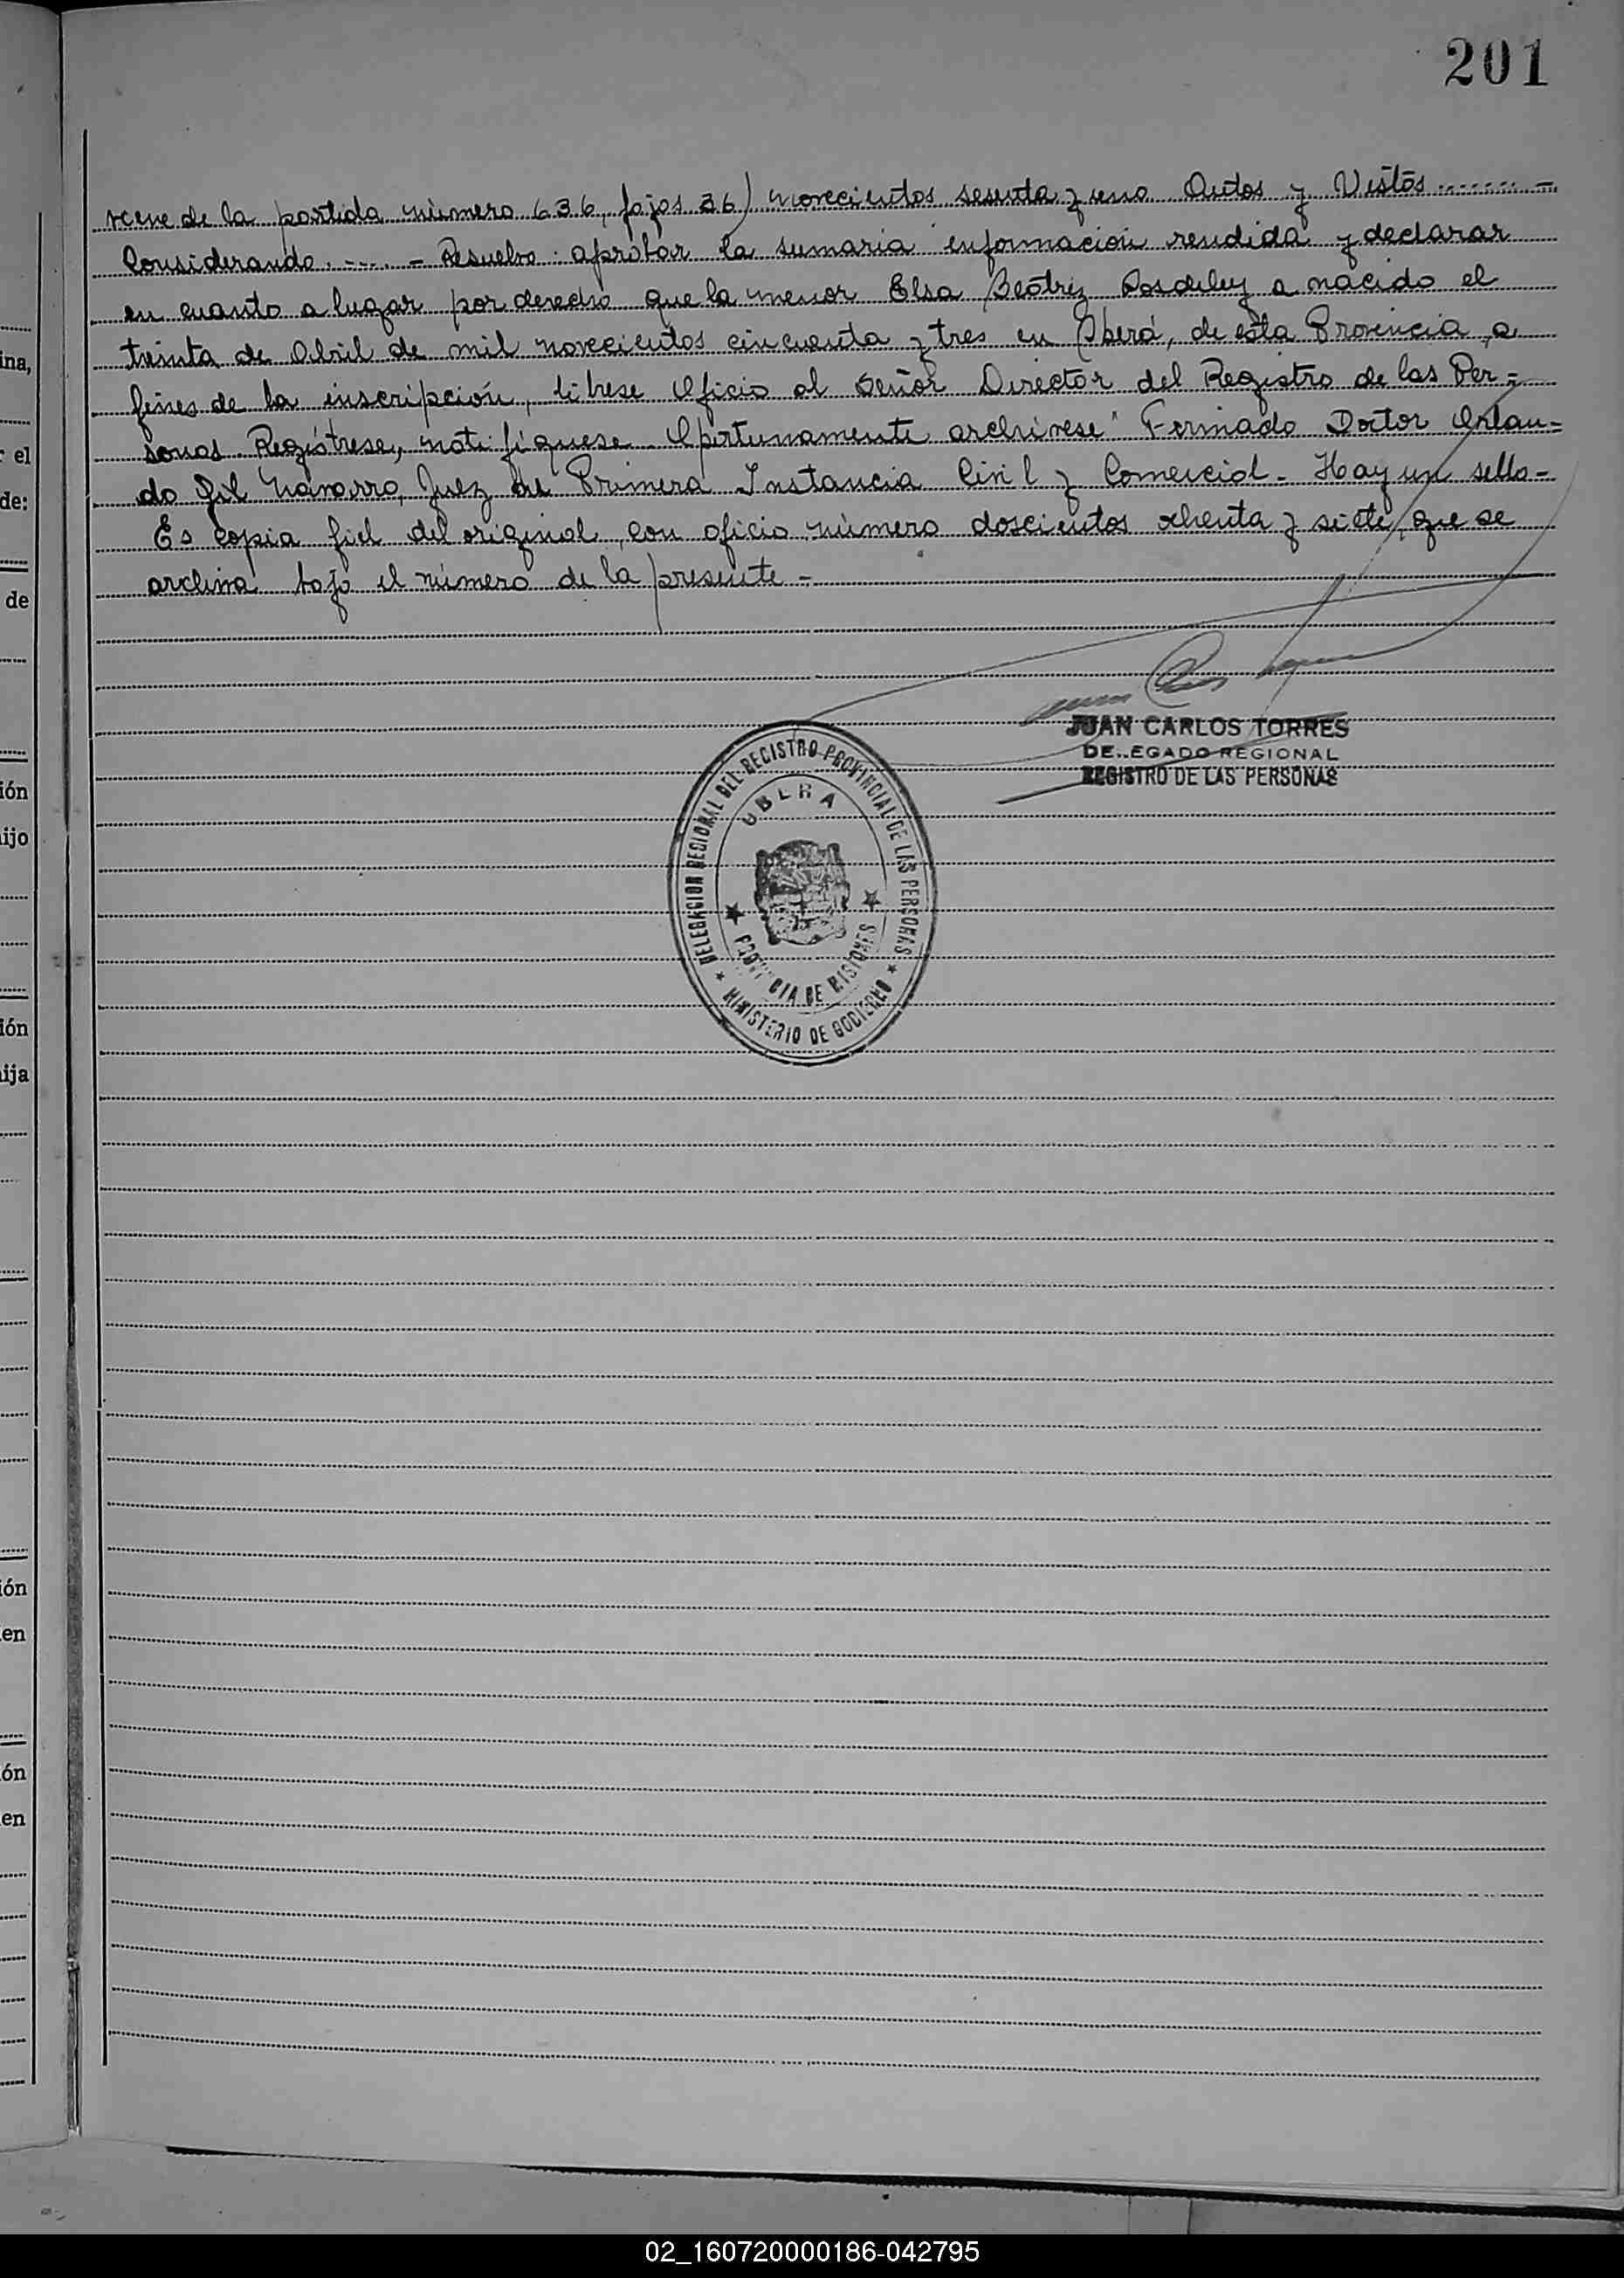 201
viene de la partida número 636, fojas 36) novecientos sesenta y uno Autos y Vistos ........ -
Considerando .-.... - Resuelvo: aprobar la sumaria información rendida y declarar
en cuanto a lugar por derecho que la menor Elsa Beatriz a nacido el
treinta de Abril de mil novecientos cincuenta y tres en Oberá, de esta Provincia, a
fines de la inscripción, librese Oficio al Señor Director del Registro de las Per-
sonas. Regístrese, notifíquese. Oportunamente archivese" Firmado Doctor Orlan-
do Gil Navarro, Juez de Primera Instancia Civil y Comercial. Hay un sello-
Es copia fiel del original, con oficio número doscientos ochenta y siete, que se
archiva bajo el número de la presente -
JUAN CARLOS TORRES
DELEGADO REGIONAL
REGISTRO DE LAS PERSONAS
DELEGACION REGIONAL DEL REGISTRO PROVINCIAL DE LAS PERSONAS
OBERA
PROVINCIA DE MISIONES
MINISTERIO DE GOBIERNO
ina,
r el
de:
de
ión
hijo
ión
hija
ión
en
ón
en
02_160720000186-042795